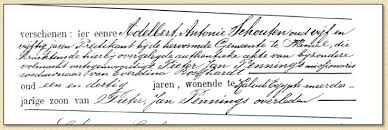 verschenen: ter eenre Adelbert Antonie Schouten oud vijf en
vijftig jaren Predikant bij de hervormde Gemeente te die
krachtens de hierbij overgelegde authentieke akte van bijzondere
volmacht vertegenwoordigt Pieter Jan Jennings missionaris
weduwnaar van Everhtina Borghardt
oud een en dertig jaren, wonende te Egypte meerder-
jarige zoon van Pieter Jan Jennings overleden